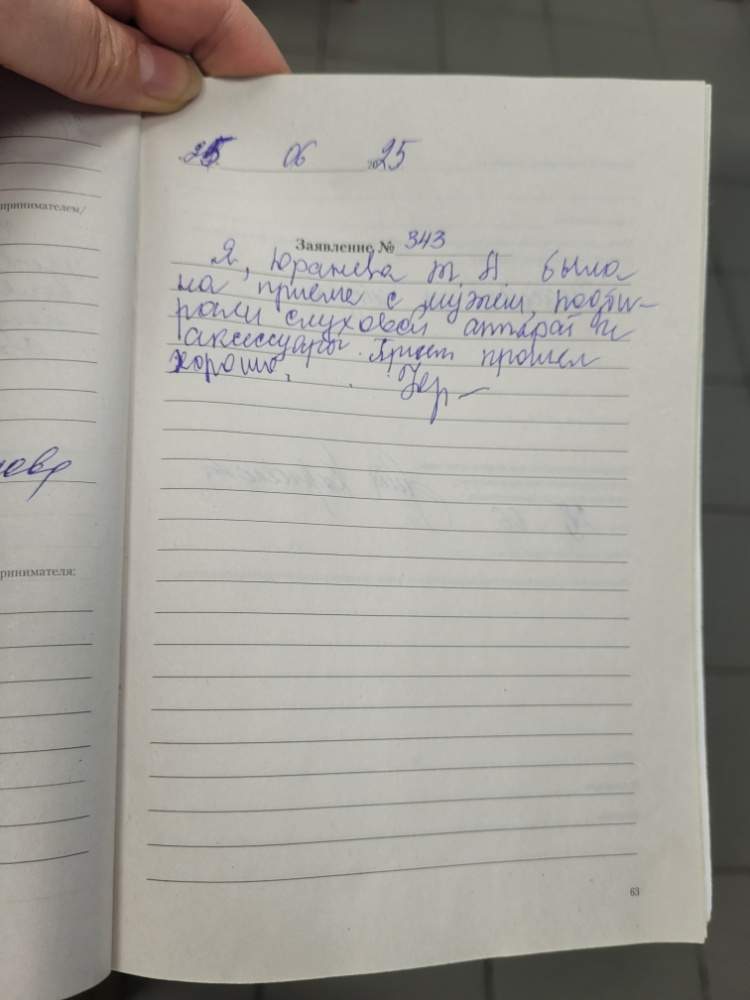 принимателем/
ринимателя:
25 06 2025
Заявление № 343
Я, Юранева Т. П. была
на приеме с мужем, подби-
рали слуховой аппарат и
аксессуары. Прием прошел
хорошо.
63